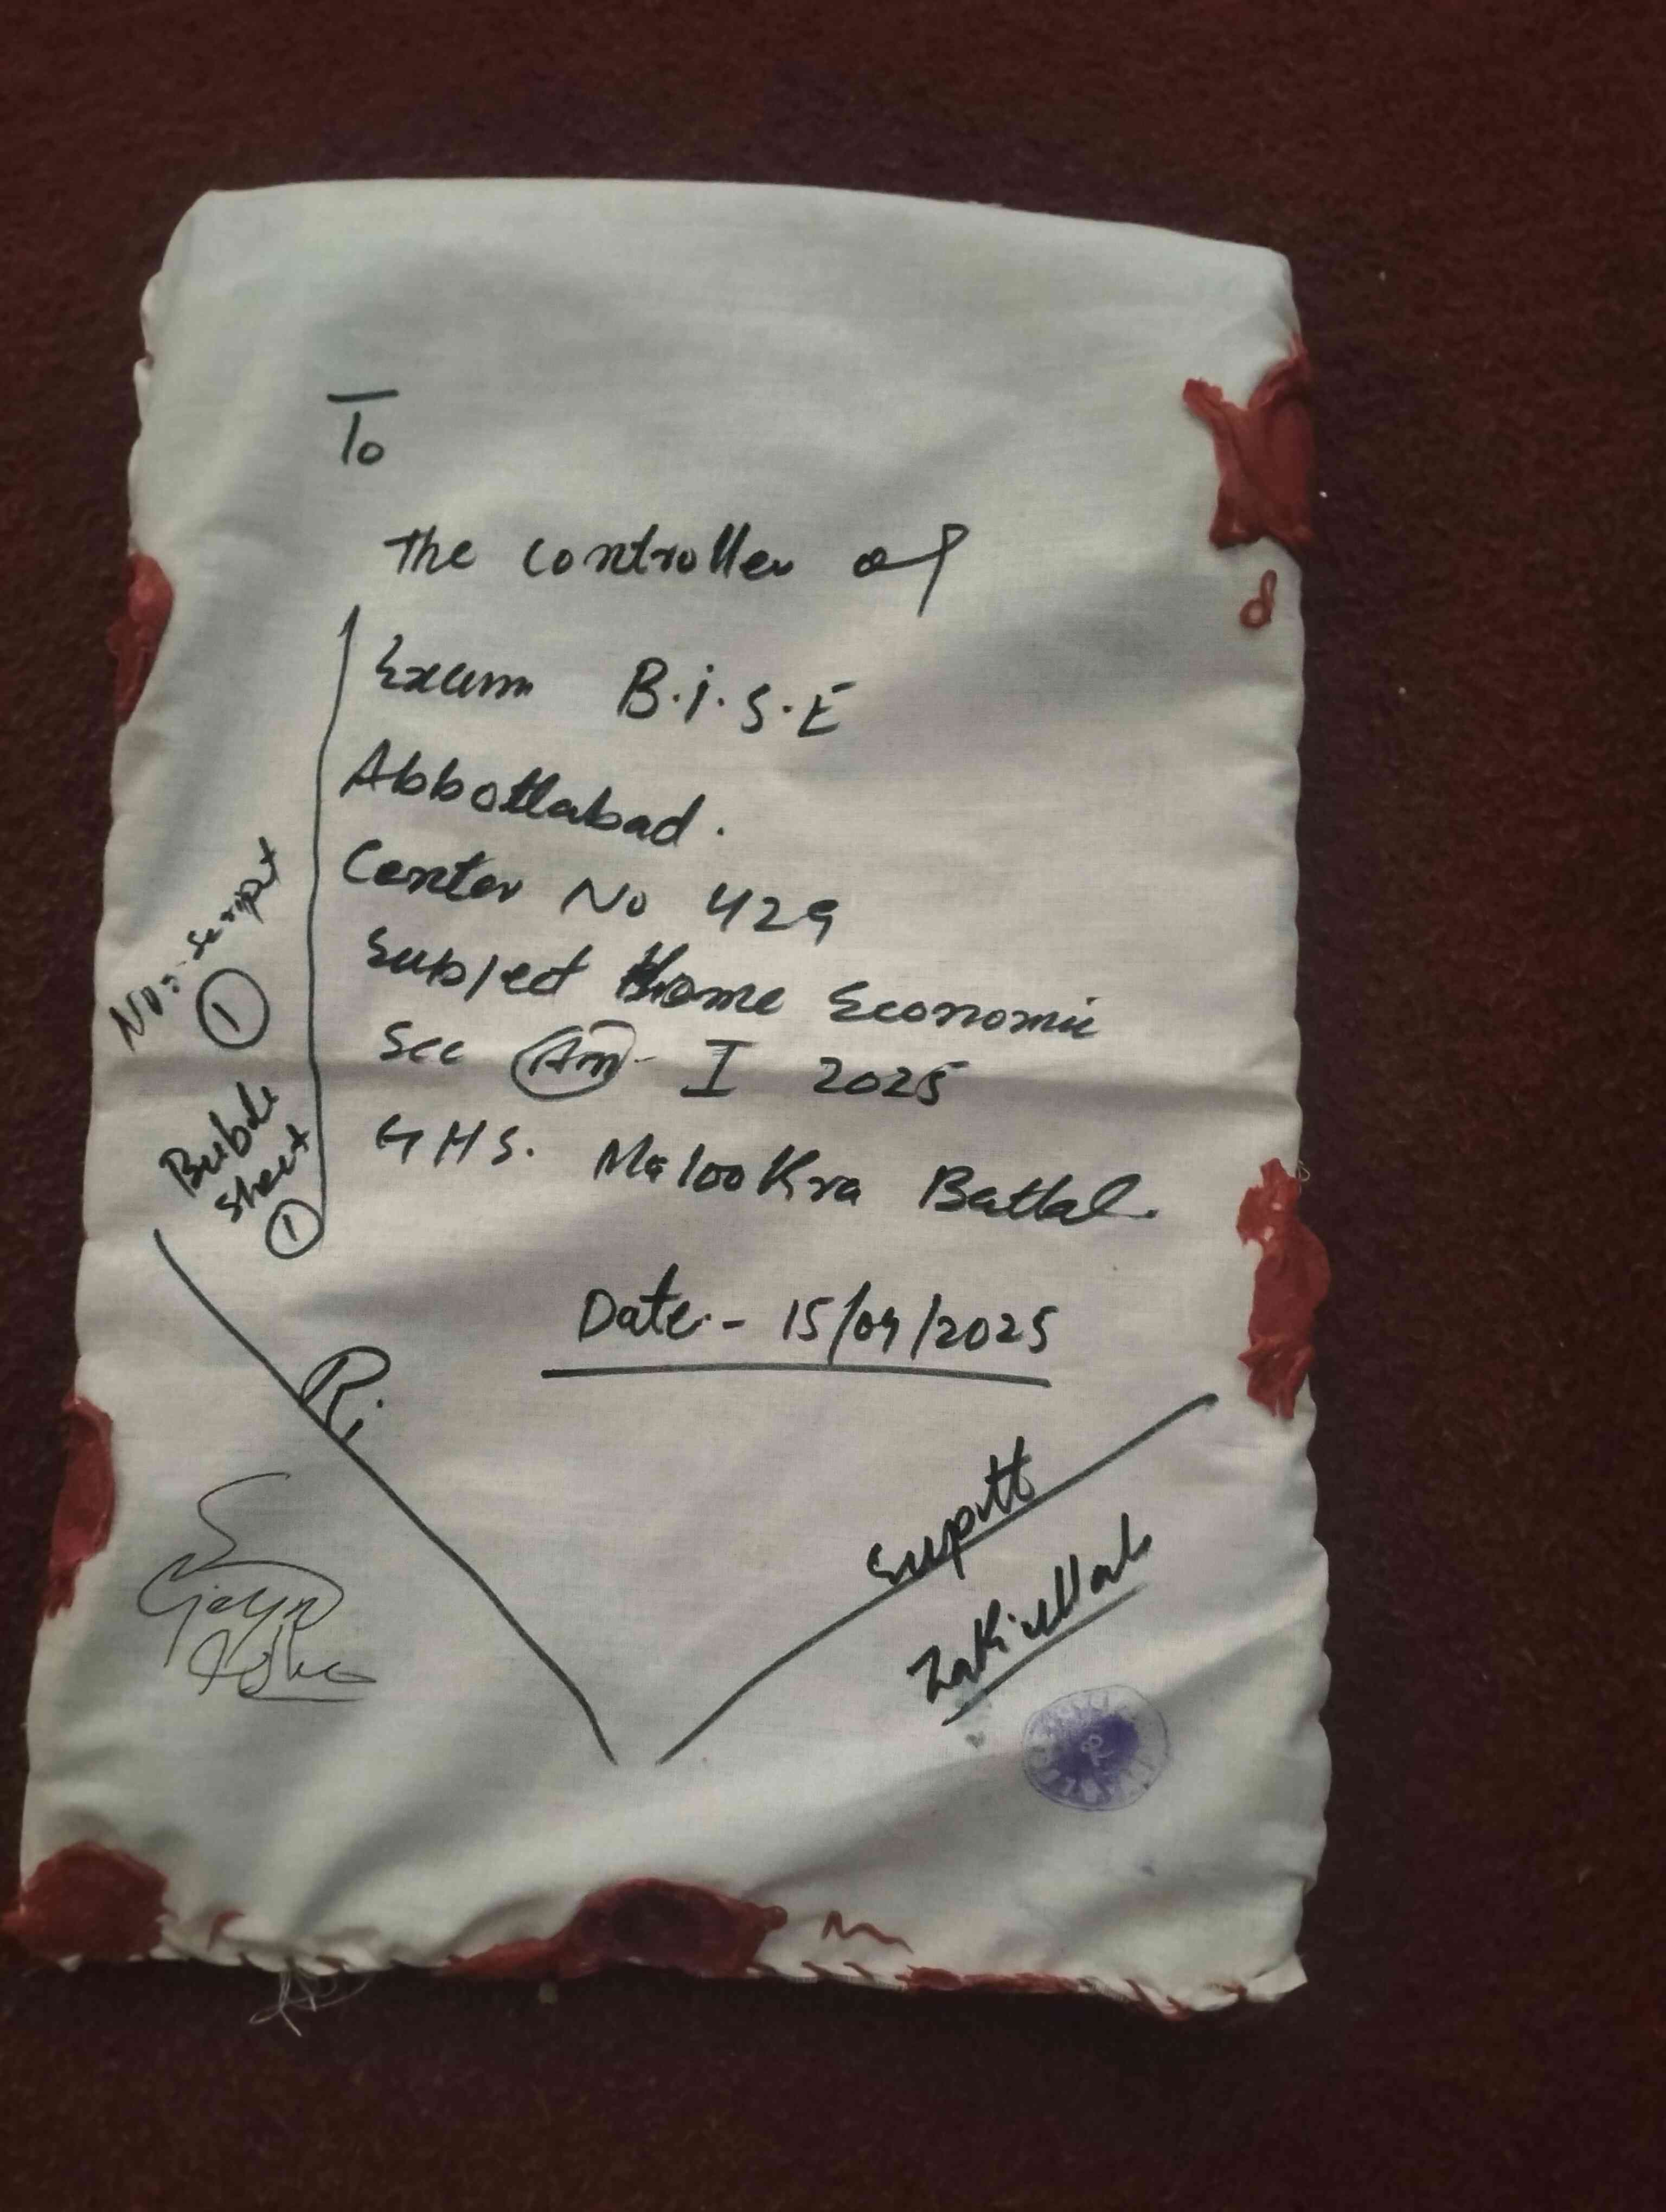 To
The controller of
Exam B.i.S.E
Abbottabad.
Center No 429
Subject Home Economic
SCC Am- I 2025
GHS. Malookra Battal.
Date:- 15/09/2025
No:- Script
1
Buble
sheet
1
Ri
Supdtt
Zakiullah